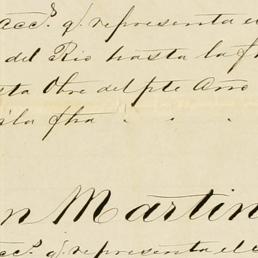 acc.s q.e representa e
del Rio hasta la f
sta Obre del pte Año
a la fha . . .
n Martin
acc.s q.e representa el c